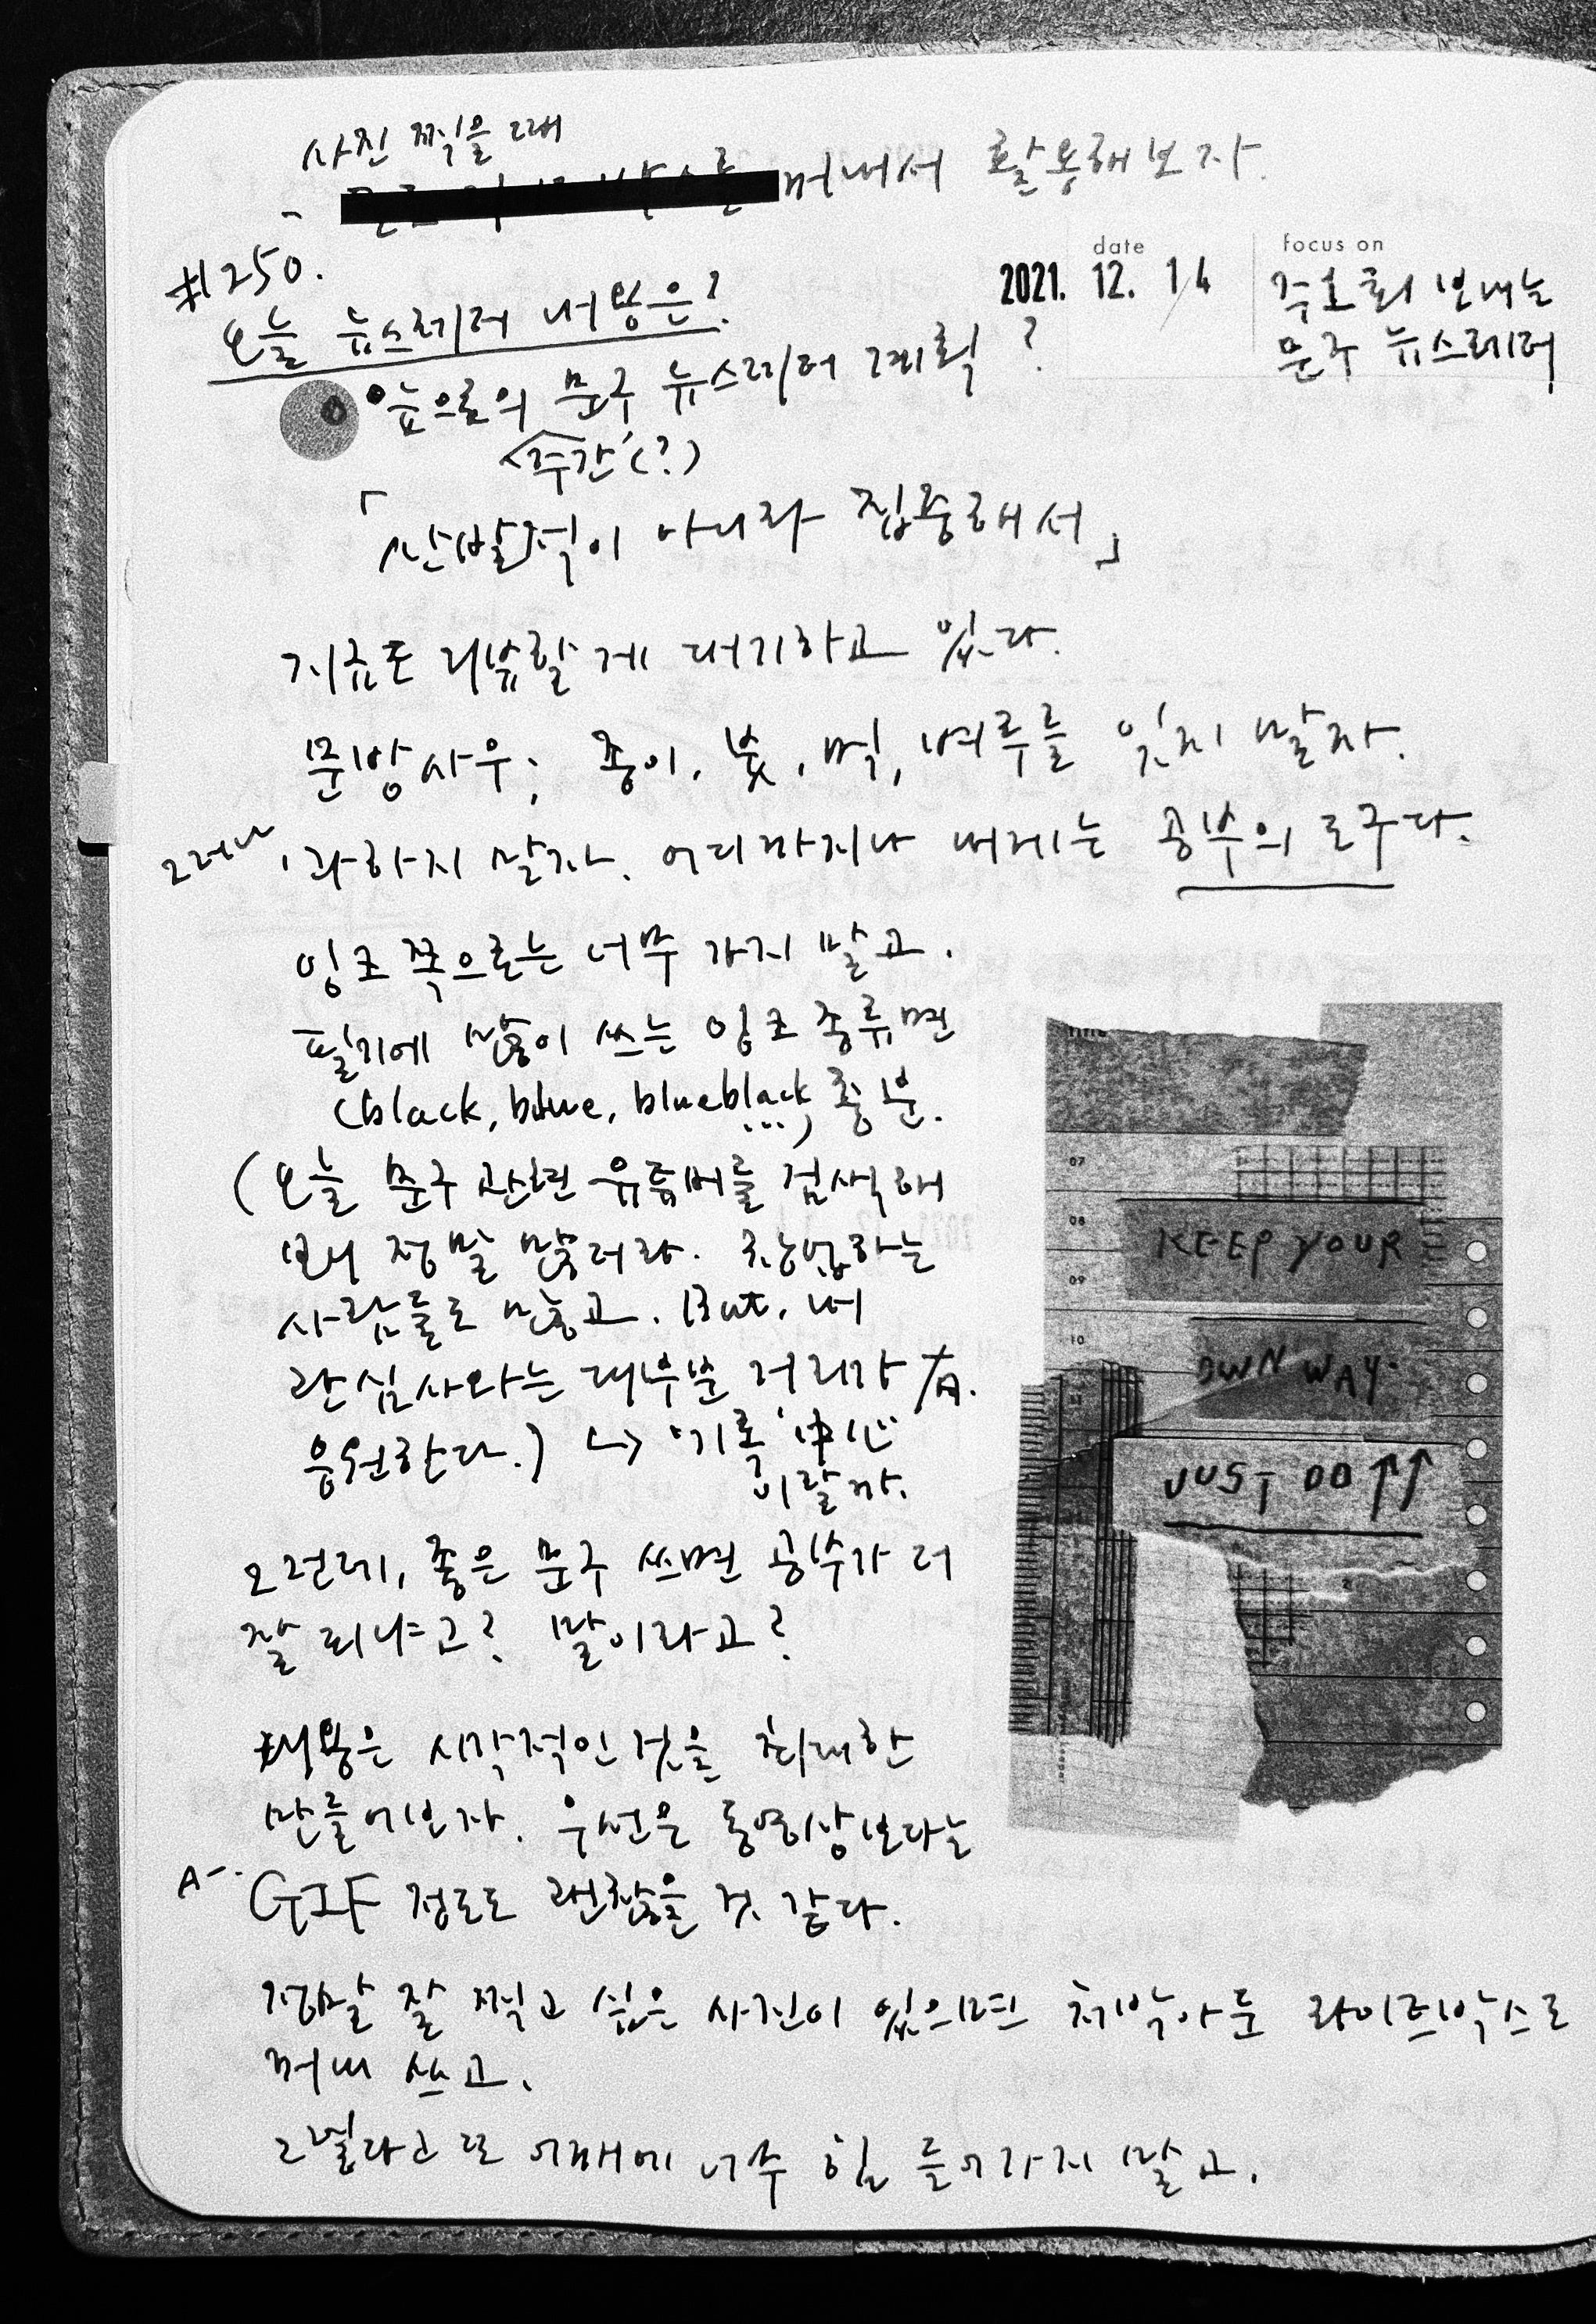 사진 찍을 때
- 꺼내서 활용해보자.
#1250.
date
focus on
2021. 12. 14
주 1회 보내는
문구 뉴스레터
오늘 뉴스레터 내용은?
앞으로의 문구 뉴스레터 계획?
<주간'(?)
「산발적이 아니라 집중해서」
지금도 리뷰할 게 대기하고 있다.
문방사우; 종이, 붓, 먹, 벼루를 잊지 말자.
그러나, 과하지 말자. 어디까지나 내게는 공부의 도구다.
잉크 쪽으로는 너무 가지 말고.
필기에 많이 쓰는 잉크 종류면
(black, blue, blueblack, ...) 충분.
(오늘 문구 관련 유튜버를 검색해
보니 정말 많더라. 창업하는
사람들도 많고. But, 내
관심사와는 대부분 거리가 有.
응원한다.) ↳ '기록' 中心
이랄까.
title
07
08
09
10
KEEP YOUR
OWN WAY.
JUST DO ↑↑
그런데, 좋은 문구 쓰면 공부가 더
잘 되냐고? 말이라고?
내용은 시각적인 것을 최대한
만들어보자. 우선은 동영상보다는
GIF 정도도 괜찮을 것 같다.
정말 잘 찍고 싶은 사진이 있으면 처박아둔 라이트박스도
꺼내 쓰고.
그렇다고 또 어깨에 너무 힘 들어가지 말고.